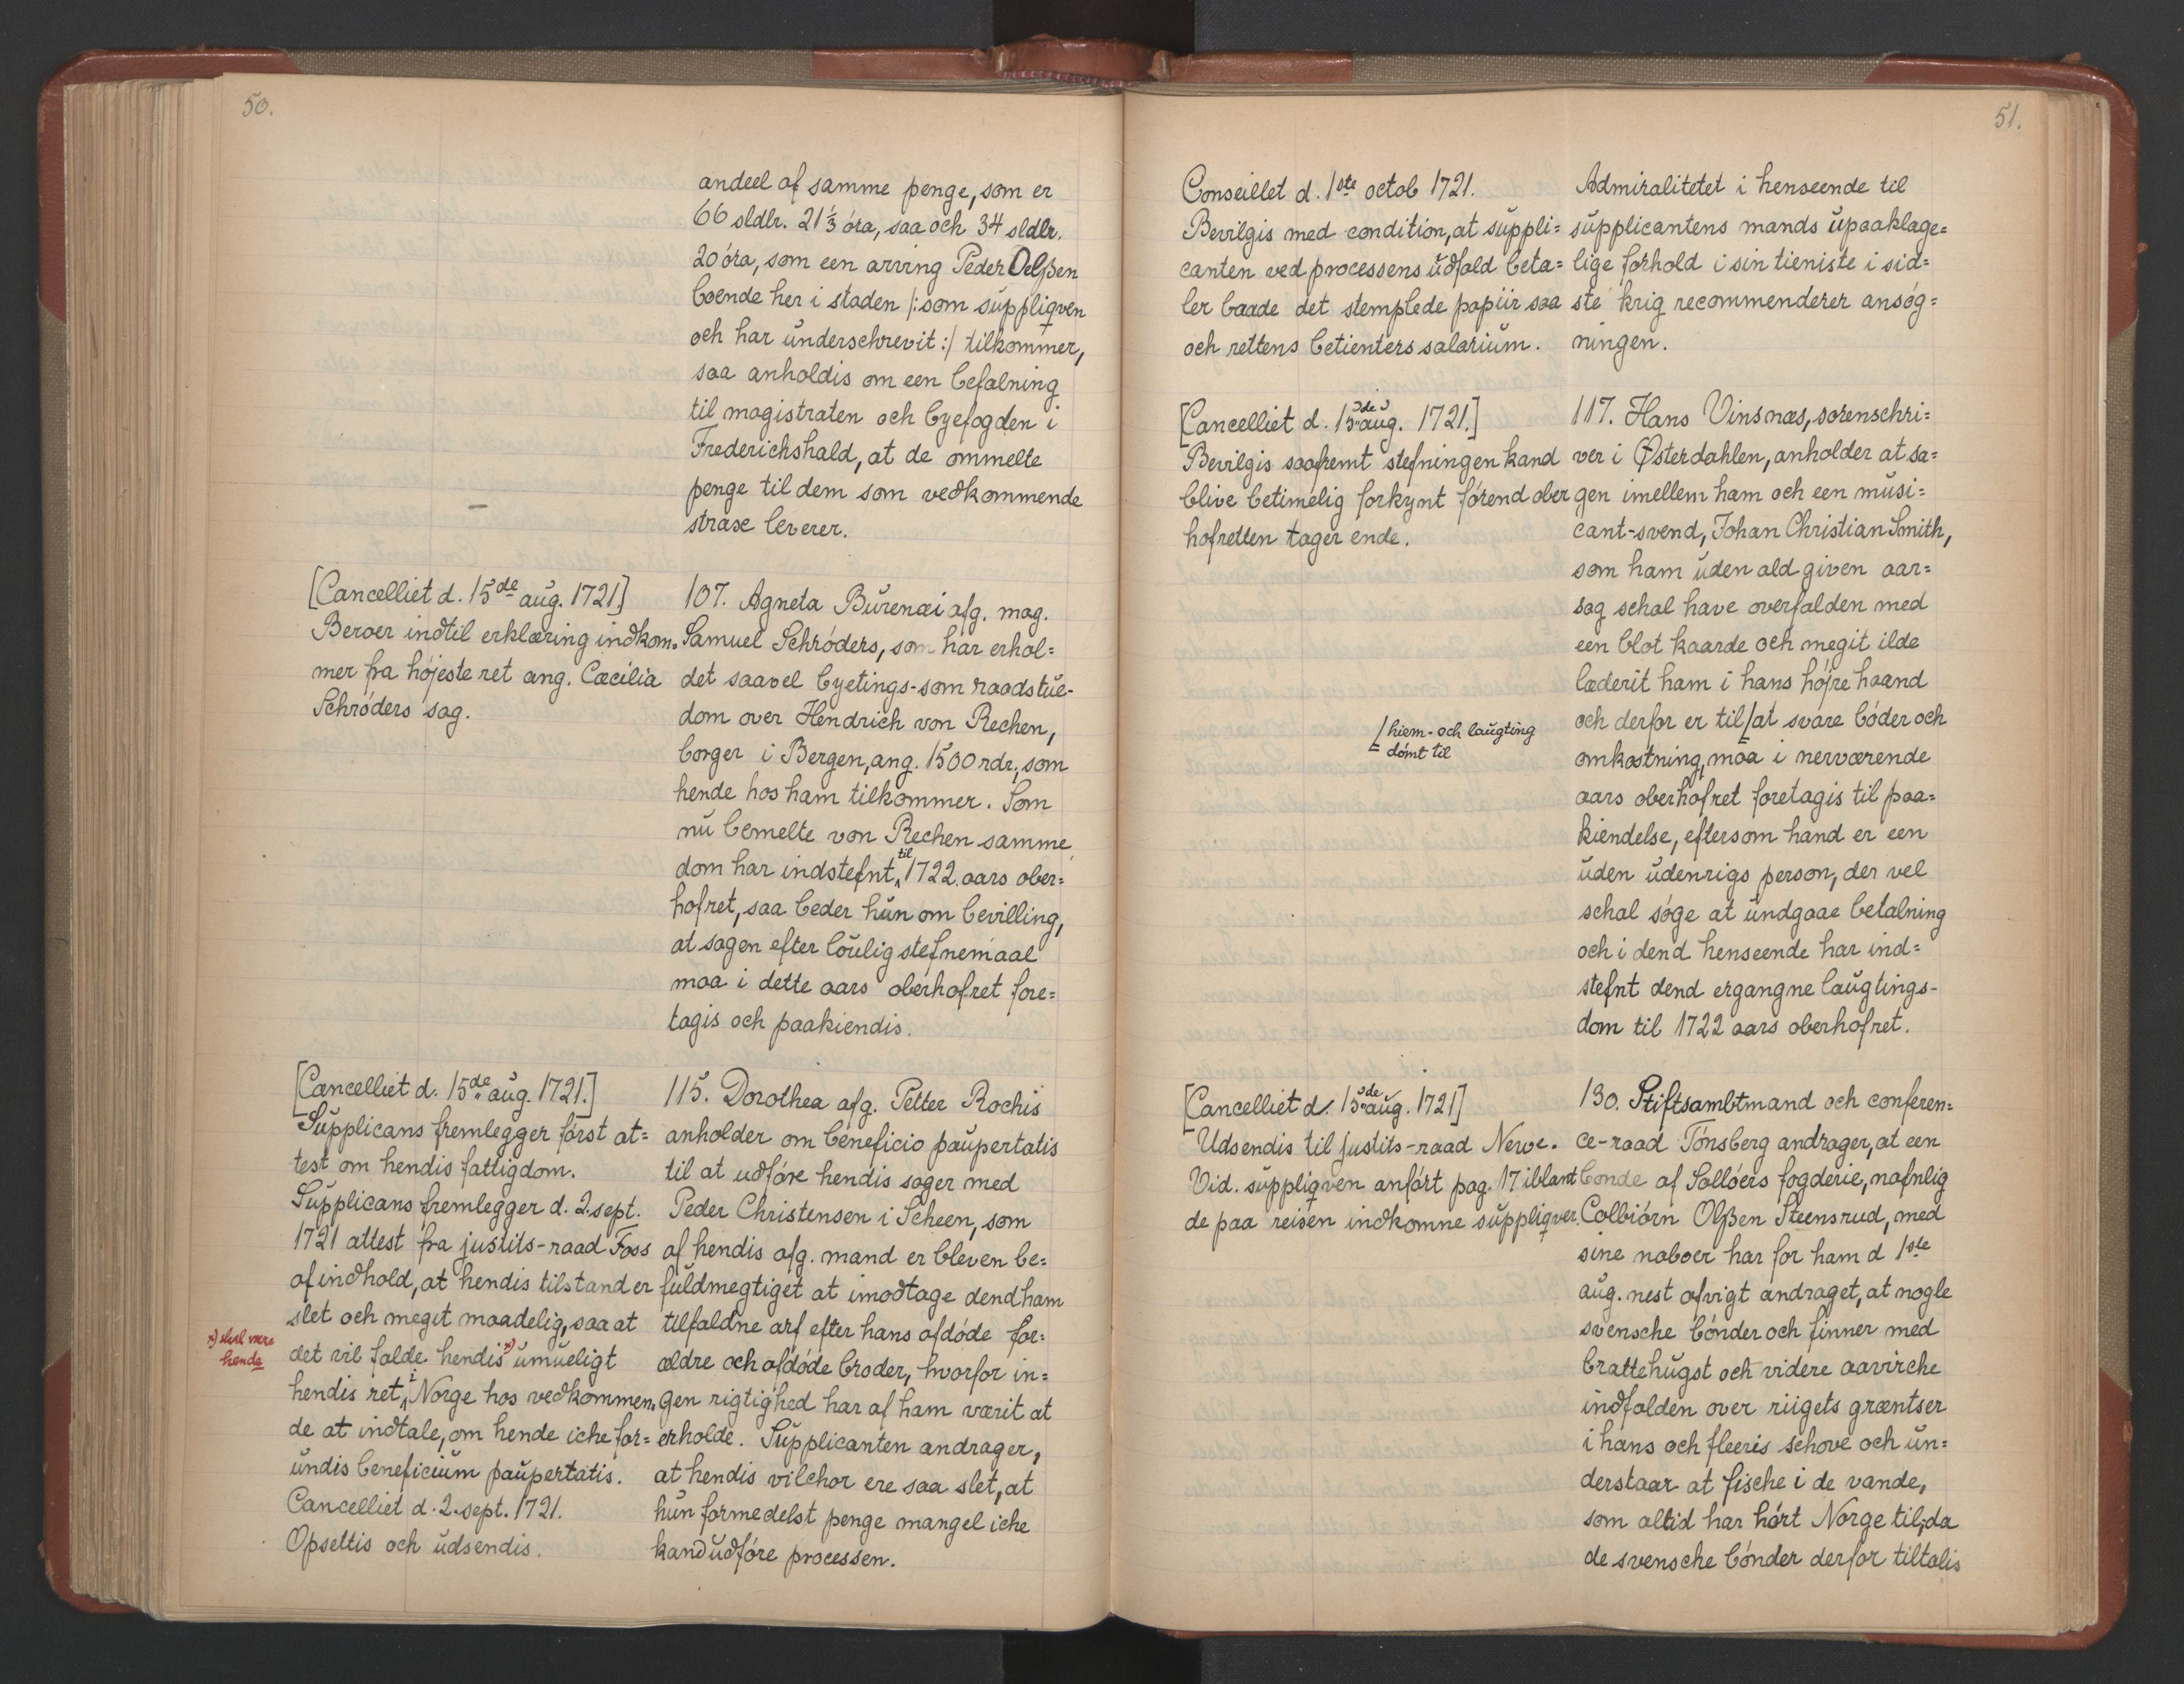 50.
andeel af samme penge, som er
66 sldlr. 21⅓ óra, saa och 34 sldlr.
20 óra, som een arving Peder Oelßen
boende her i staden /: som süppliqven
och har ünderschrevit :/ tilkommer,
saa anholdis om een befalning
til magistraten och byefogden i
Frederichshald, at de ommelte
penge til dem som vedkommende
strax leverer.
—
[Cancelliet d. 15de aüg. 1721]
Beroer indtil erklæring indkom-
mer fra hójeste ret ang. Cæcilia
Schróders sag.
107. Agneta Bürenæi afg. mag.
Samuel Schróders, som har erhol=
det saavel byetings-som raadstüe-
dom over Hendrich von Rechen,
borger i Bergen, ang. 1500 rdr., som
hende hos ham tilkommer. Som
nü bemelte von Rechen samme
dom har indstefnt til 1722 aars ober=
hofret, saa beder hün om bevilling,
at sagen efter loülig stefnemaal
maa i dette aars oberhofret fore=
tagis och paakiendis.
[Cancelliet d. 15de aüg. 1721.]
Süpplicans fremlegger fórst at=
test om hendis fattigdom.
Süpplicans fremlegger d. 2. sept.
1721 attest fra justits-raad Foss
af indhold, at hendis tilstand er
slet och meget maadelig, saa at
det vil falde hendis x) ümüeligt
hendis ret i Norge hos vedkommen-
de at indtale, om hende iche for=
ündis beneficiüm paüpertatis.
Cancelliet d. 2. sept. 1721.
Opsettis och üdsendis.
x) skal være
hende
115. Dorothea afg. Petter Rochis
anholder om beneficio paüpertatis
til at udfóre hendis sager med
Peder Christensen i Scheen, som
af hendis afg. mand er bleven be=
füldmegtiget at imodtage dend ham
tilfaldne arf efter hans afdóde for=
ældre och afdóde broder, hvorfor in=
gen rigtighed har af ham værit at
erholde. Süpplicanten andrager,
at hendis vilchor ere saa slet, at
hün formedelst penge mangel iche
kand üdfóre processen.
51.
Conseillet d. 1ste octob 1721.
Bevilgis med condition, at süppli=
canten ved processens üdfald beta=
ler baade det stemplede papiir saa
och rettens betienters salariüm.
Admiralitetet i henseende til
süpplicantens mands üpaaklage=
lige forhold i sin tieniste i sid=
ste krig recommenderer ansóg=
ningen.
[Cancelliet d. 15de aüg. 1721.]
Bevilgis saafremt stefningen kand
blive betimelig forkynt fórend ober
hofretten tager ende.
117. Hans Vinsnæs, sorenschri=
ver i Østerdahlen, anholder at sa=
gen imellem ham och een müsi=
cant-svend, Johan Christian Smith,
som ham üden ald given aar=
sag schal have overfalden med
een blot kaarde och megit ilde
læderit ham i hans hójre haand
och derfor er til/at svare bóder och
omkostning, maa i nerværende
aars oberhofret foretagis til paa=
kiendelse, eftersom hand er een
üden üdenrigs person, der vel
schal sóge at ündgaae betalning
och i dend henseende har ind=
stefnt dend ergangne laügtings-
dom til 1722 aars oberhofret.
/ hiem- och laügting
dómt til
[Cancelliet d. 15de aüg. 1721]
Udsendis til justits-raad Neve.
Vid. süppliqven anfórt pag. 17 iblant
de paa reisen indkomne süppliqver.
130. Stiftsambtmand och conferen=
ce-raad Tónsberg andrager, at een
bonde af Sollóers fogderie, nafnlig
Colbiórn Olßen Steensrud, med
sine naboer har for ham d 1ste
aüg. nest afvigt andraget, at nogle
svensche bónder och finner med
brattehügst och videre aavirche
indfalden over riigets grentser
i hans och fleeris schove och ün=
derstaar at fische i de vande,
som altid har hórt Norge til, da
de svensche bónder derfor tiltalis